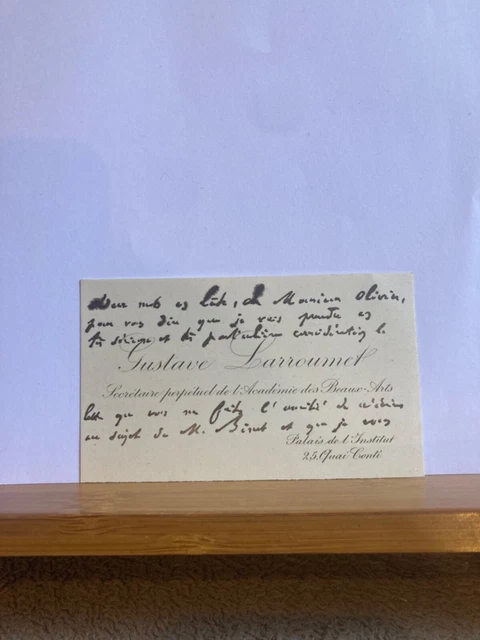 mots en hâte, Monsieur Olivier,
pour vous dire que je vais prendre en
très sérieuse et très particulière considération la
Gustave Larroumet
Secrétaire perpétuel de l'Académie des Beaux-Arts
lettre que vous me faites l'amitié de m'écrire
au sujet de M. et que je vous
Palais de l'Institut
25, Quai Conti